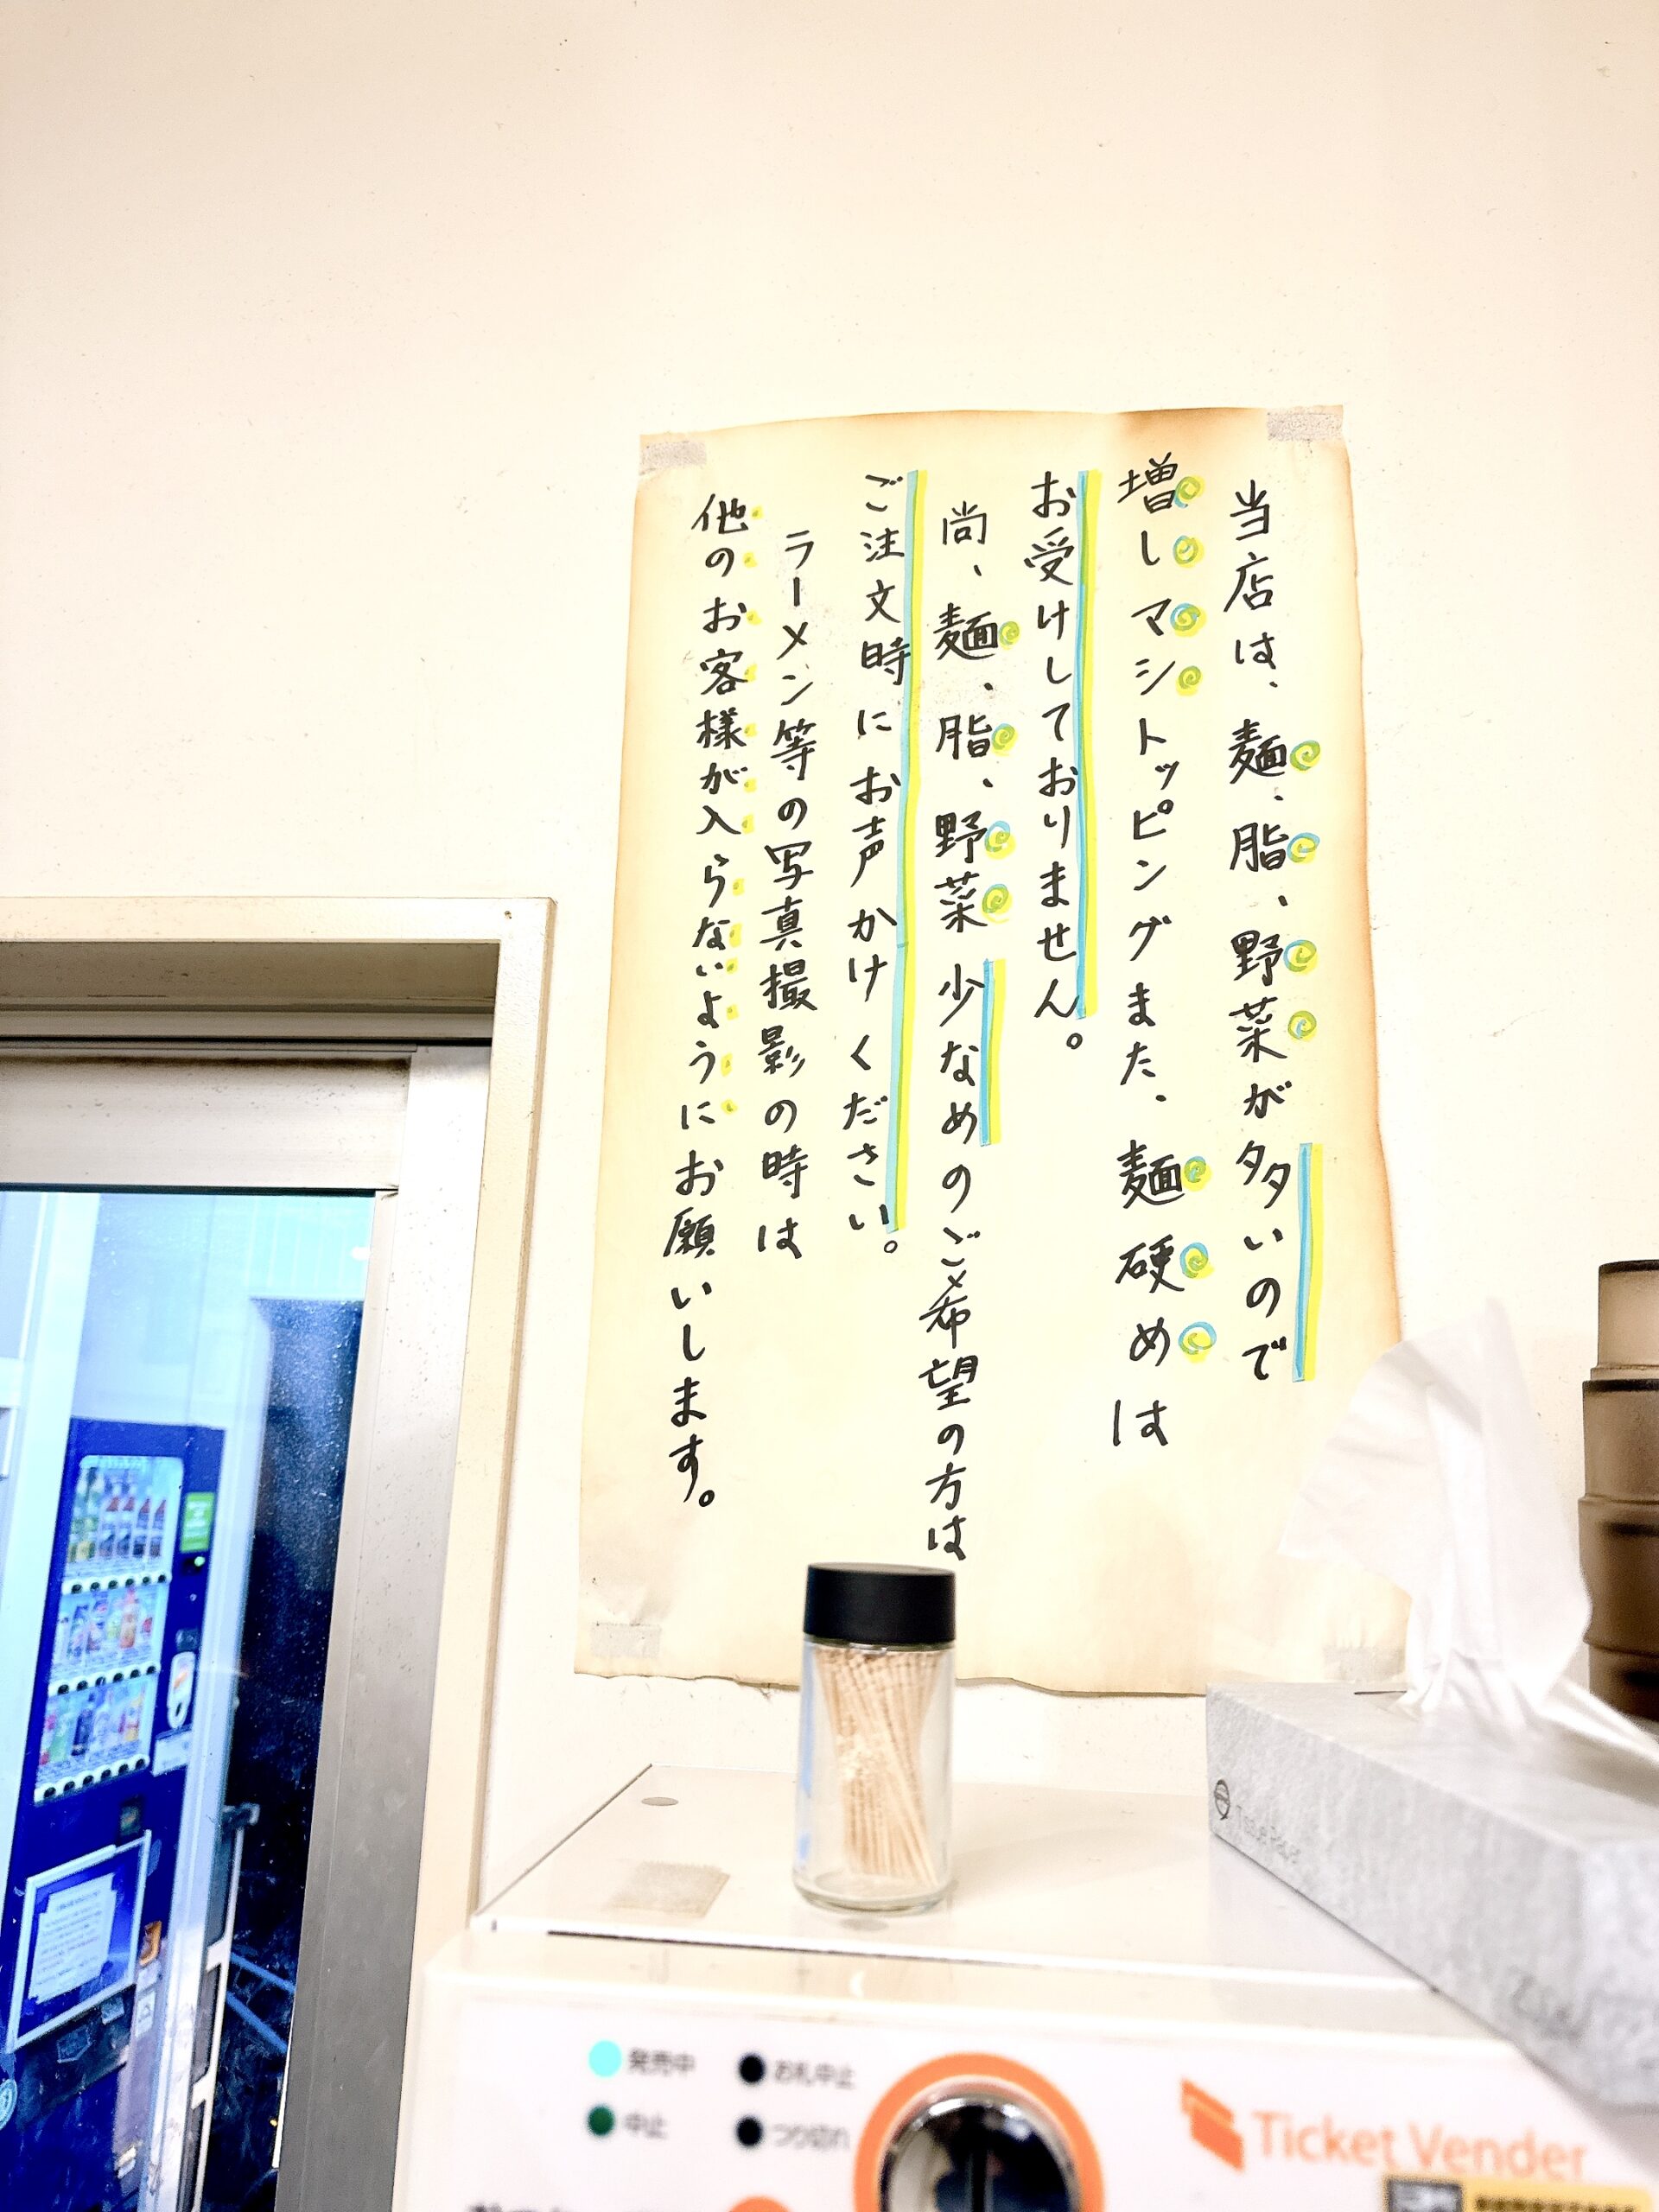 当店は、麺、脂、野菜が多いので
増しマシトッピングまた、麺硬めは
お受けしておりません。
尚、麺、脂、野菜少なめのご希望の方は
ご注文時にお声かけください。
ラーメン等の写真撮影の時は
他のお客様が入らないようにお願いします。
発売中
お札中止
中止
つり切れ
Ticket Vender